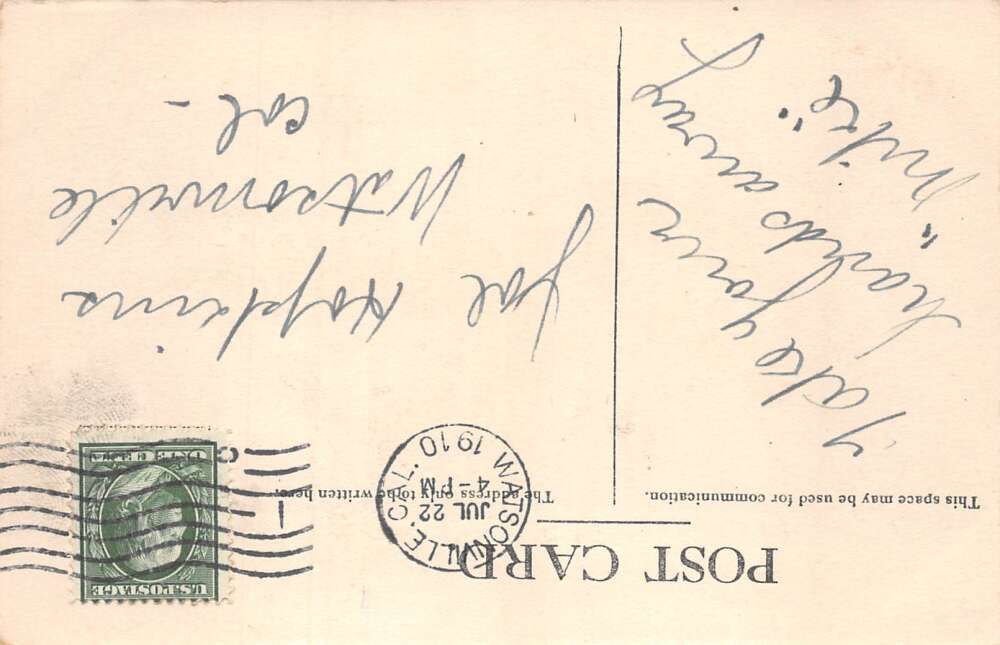 POST CARD
This space may be used for communication.
The address only to be written here.
WATSONVILLE, CAL.
JUL 22
4-PM
1910
1
U.S. POSTAGE
Take your
hands away
"Mike"
Joe Hopkins
Watsonville
Cal-